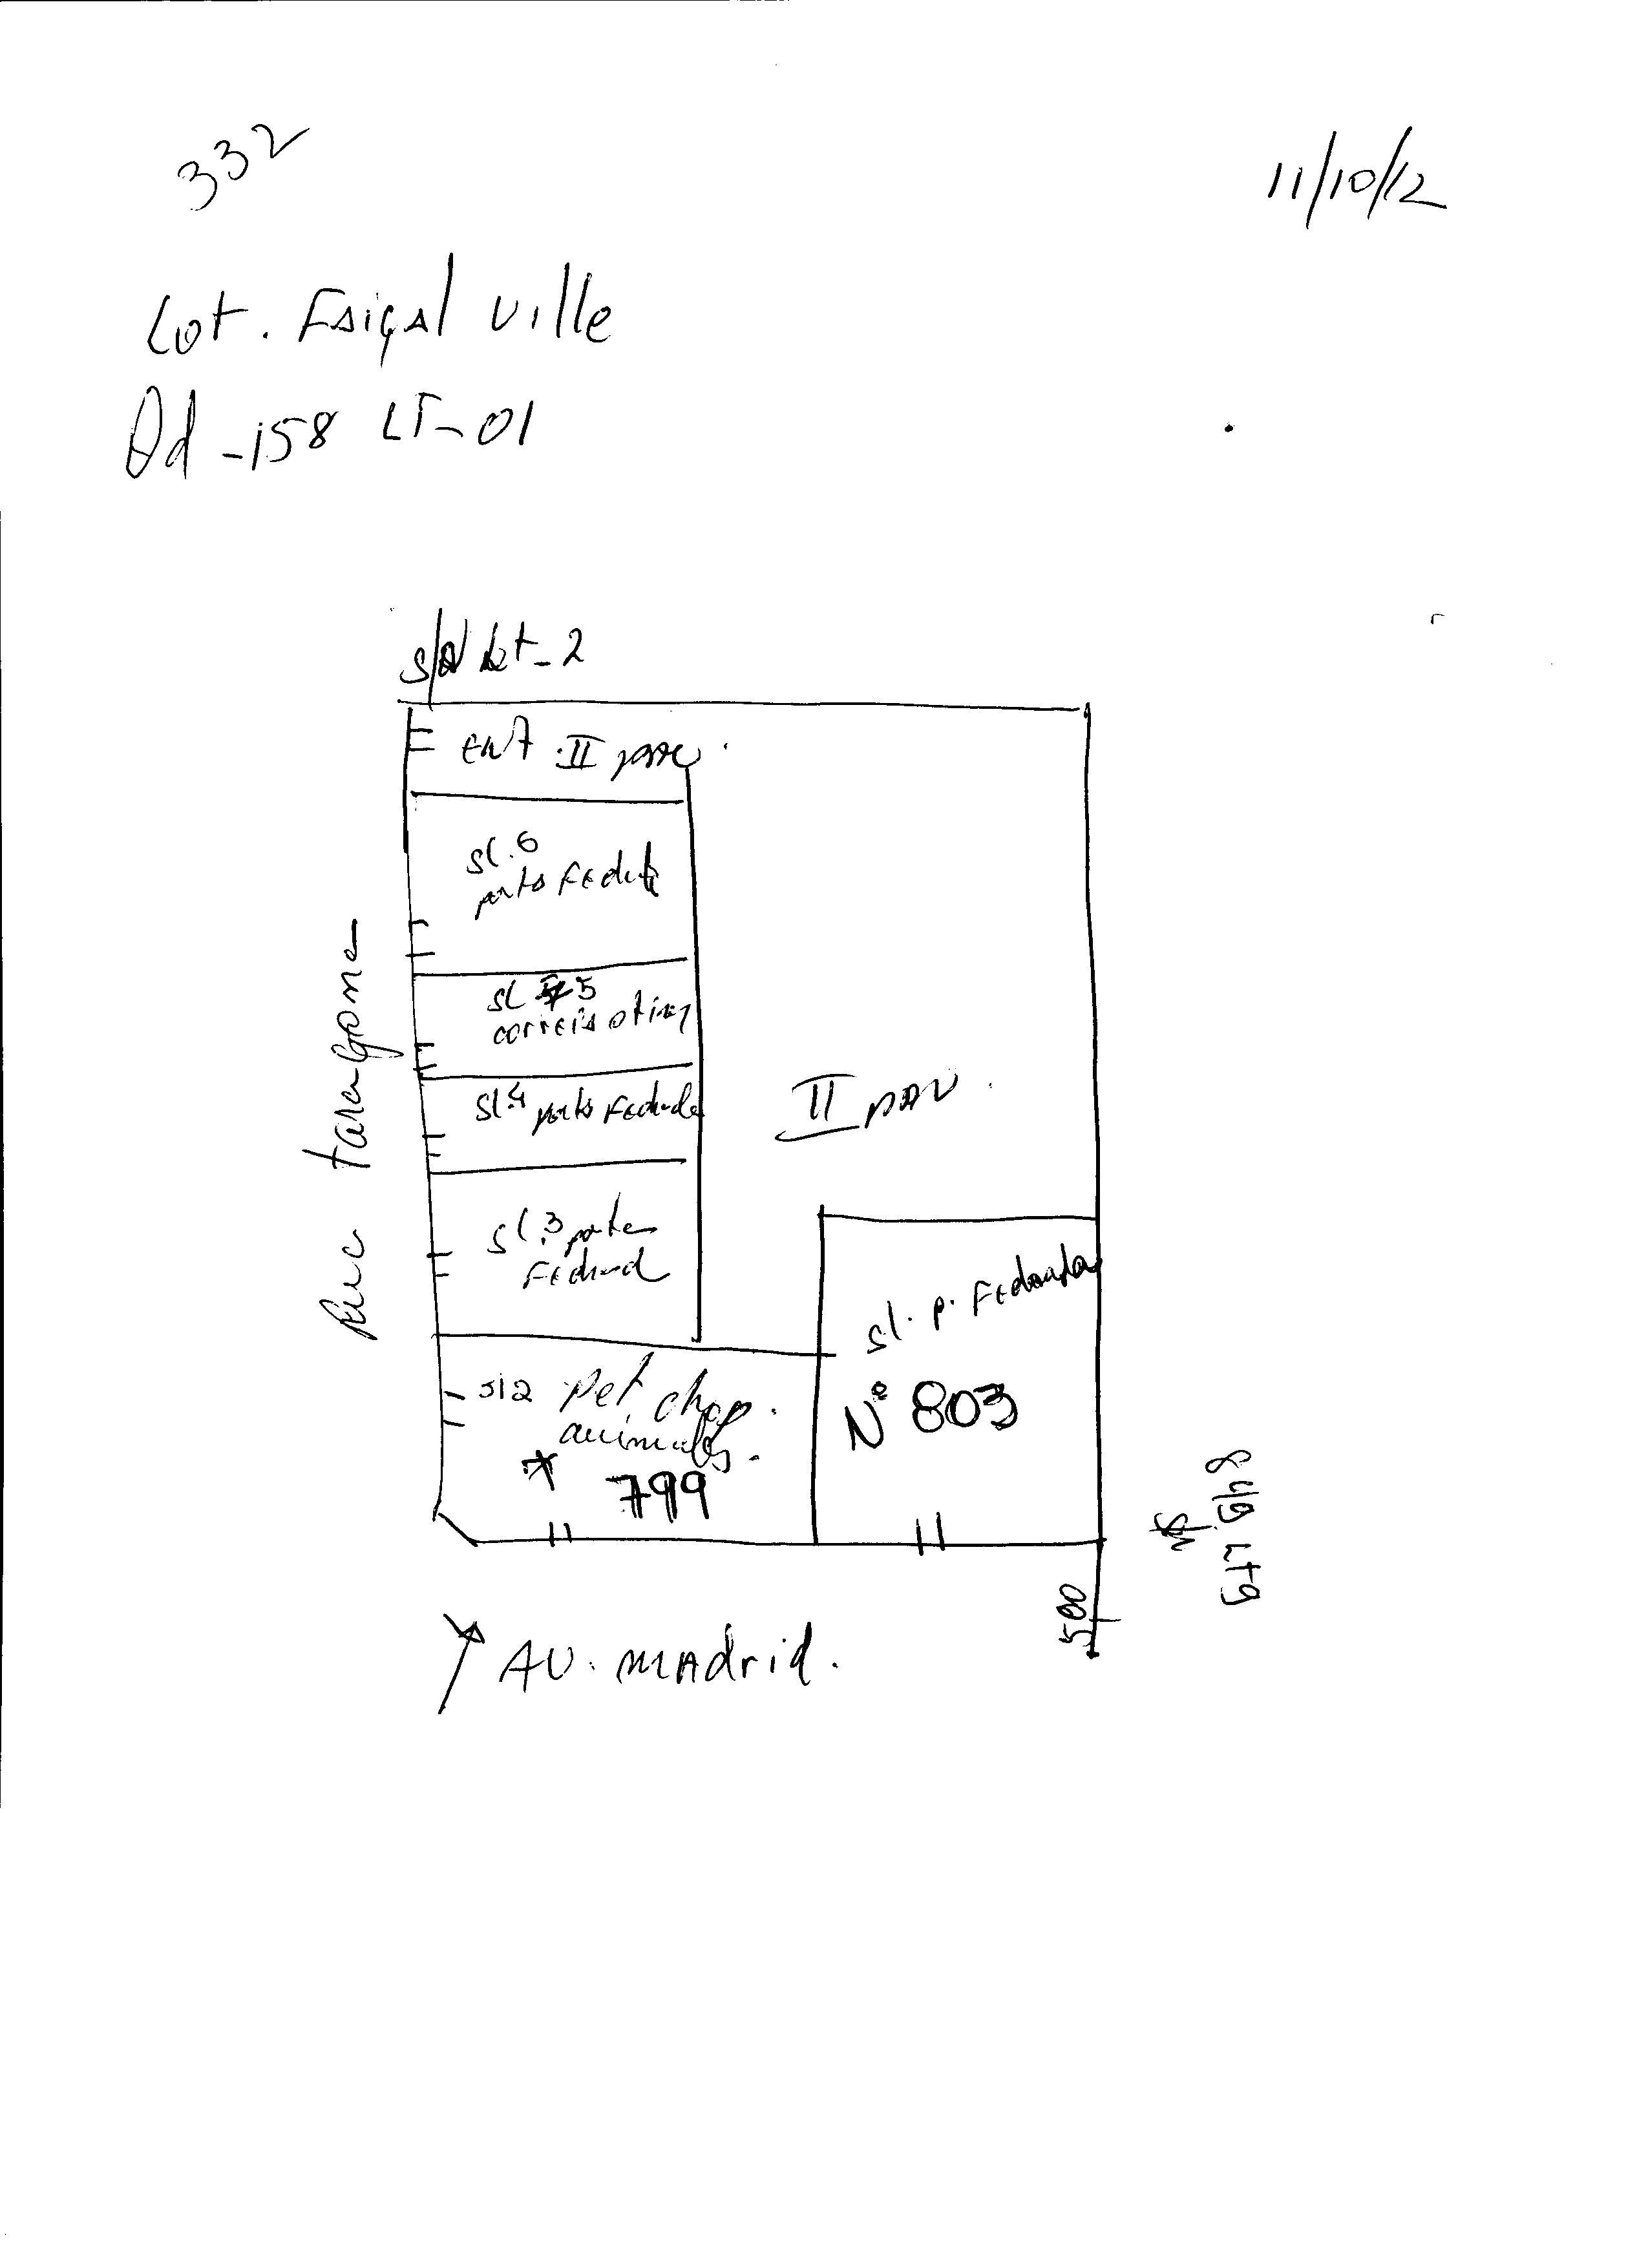 332
11/10/12
Lot. Faiçal Ville
Qd-158 LT-01
S/N Lt-2
Ent. II pav.
sl.6
porta Fechada
sl 5
correio otica
sl.4 porta Fechada
sl.3 porta
Fechad
Rua taragona
II pav.
sl2 pet chop.
animales.
* 799
sl. p. Fechada
N° 803
500
AV. Madrid.